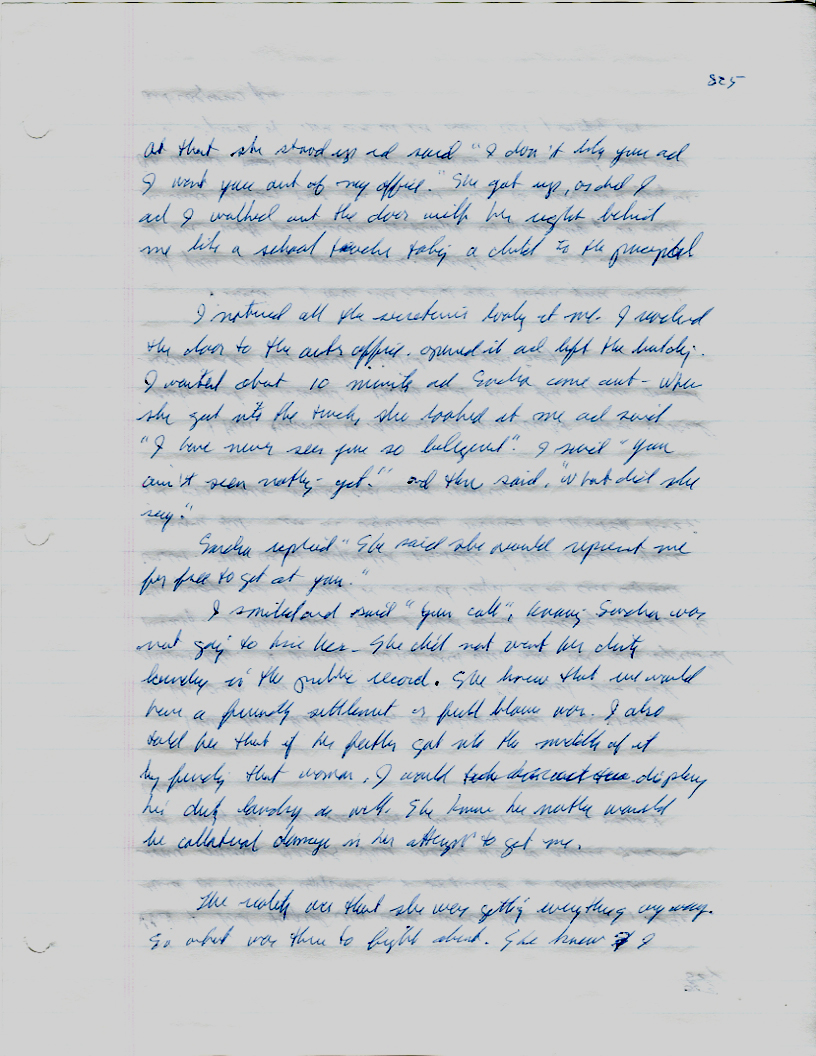 825
At that she stood up ad said "I don't like you ad
I want you out of my office." She got up, as did I
ad I walked out the door with her right behind
me like a school teacher taking a child to the principal
I noticed all the secretaries looking at me. I reached
the door to the outer office, opened it ad left the building.
I waited about 10 minutes ad Sandra came out - when
she got into the truck, she looked at me ad said
"I have never seen you so beligerent". I said "you
ain't seen nothing - yet!" ad then said, "What did she
say."
Sandra replied "She said she would represent me
for free to get at you."
I smiled and said "your call", knowing Sandra was
not going to hire her. She did not want her dirty
laundry in the public record. She knew that we would
have a friendly settlement or full blown war. I also
told her that if her father got into the middle of it
by funding that woman, I would display
his dirty laundry as well. She knew her mother would
be collateral damage in her attempt to get me.
The reality was that she was getting everything anyway.
So what was there to fight about. She knew I